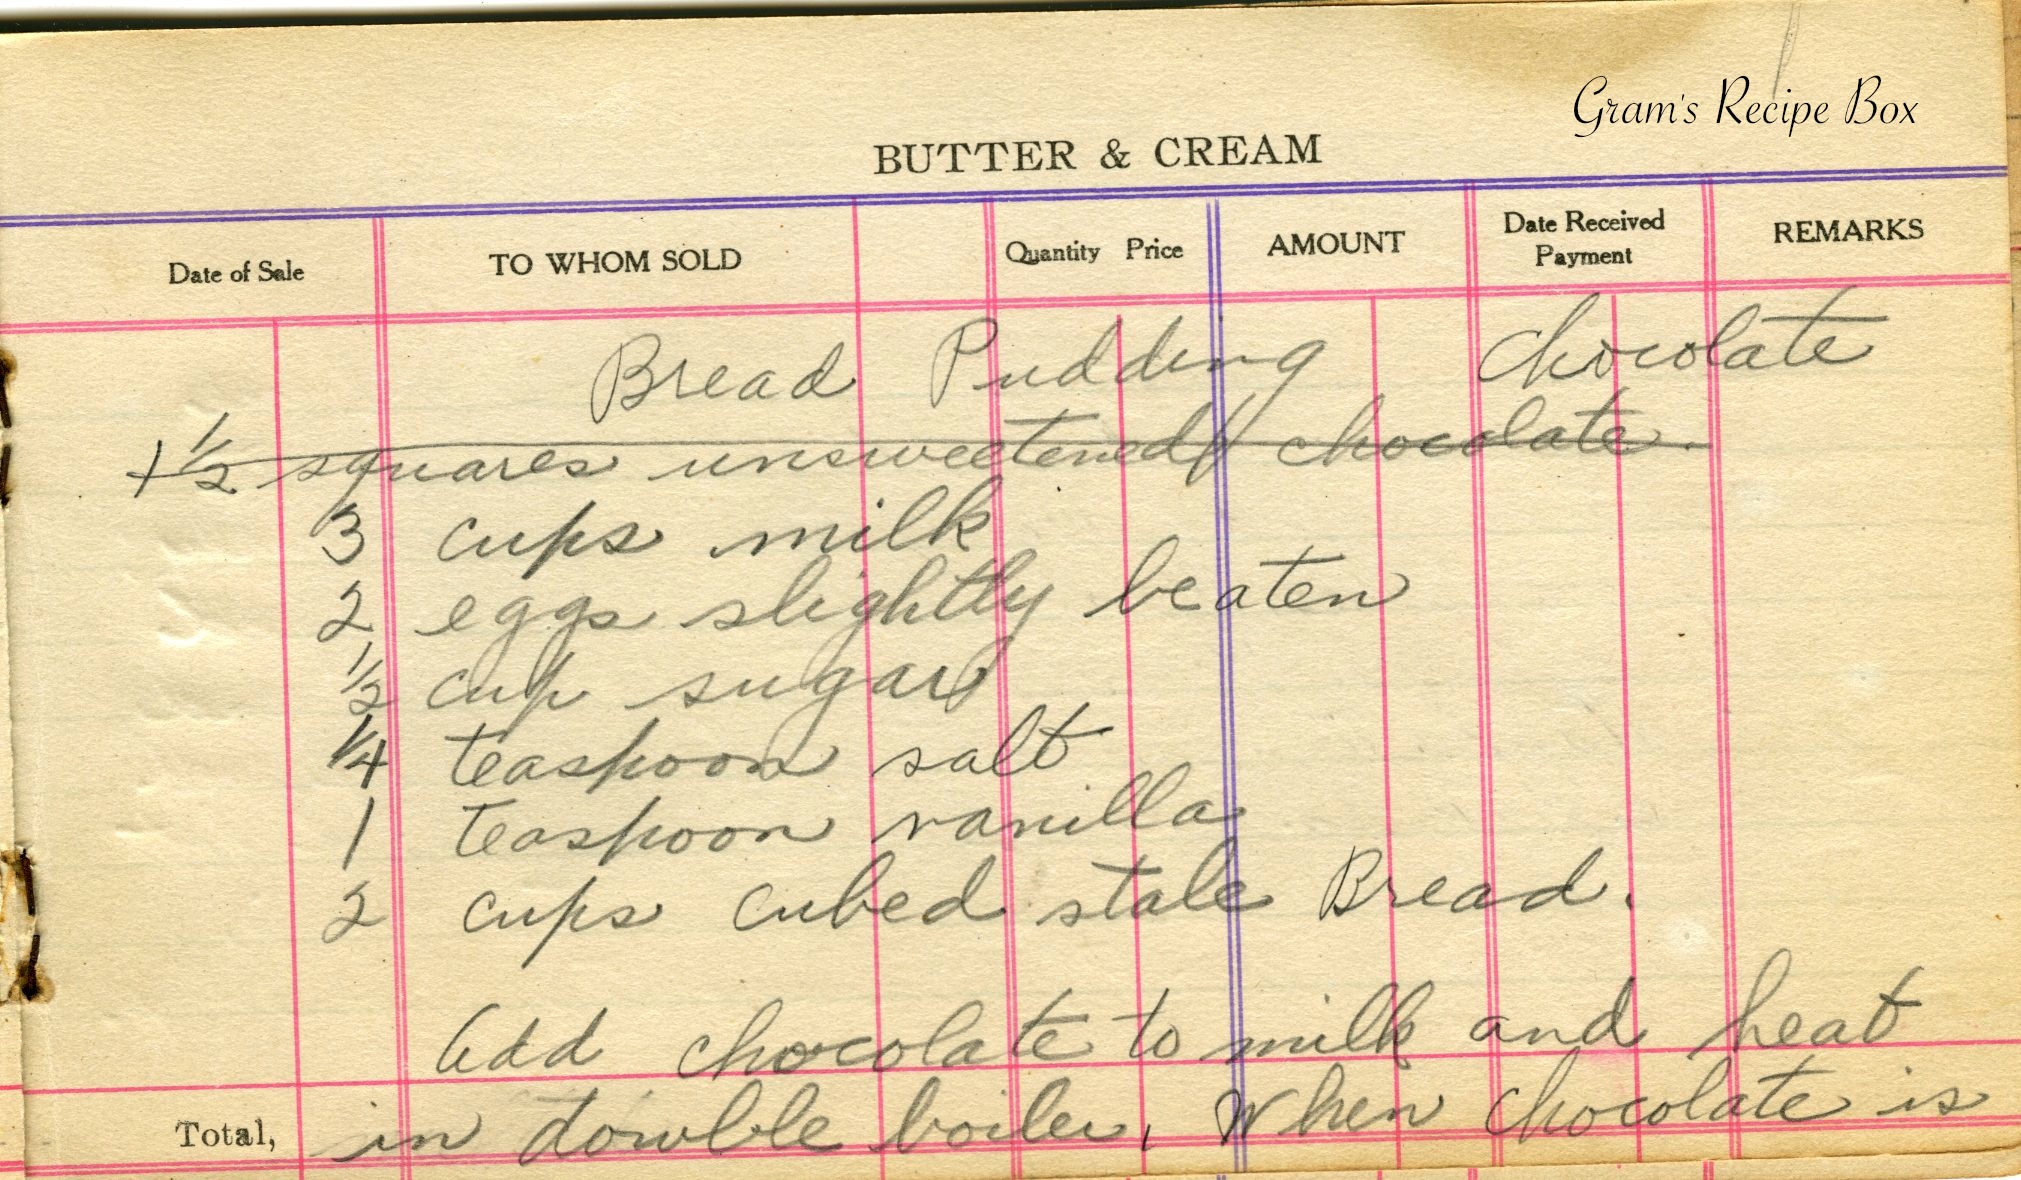 Gram's Recipe Box
BUTTER & CREAM
Date of Sale TO WHOM SOLD Quantity Price AMOUNT Date Received Payment REMARKS
Bread Pudding Chocolate
1 1/2 squares unsweetened chocolate.
3 cups milk
2 eggs slightly beaten
1/2 cup sugar
1/4 teaspoon salt
1 teaspoon vanilla
2 cups cubed stale Bread.
Add chocolate to milk and heat
Total, in double boiler, When chocolate is